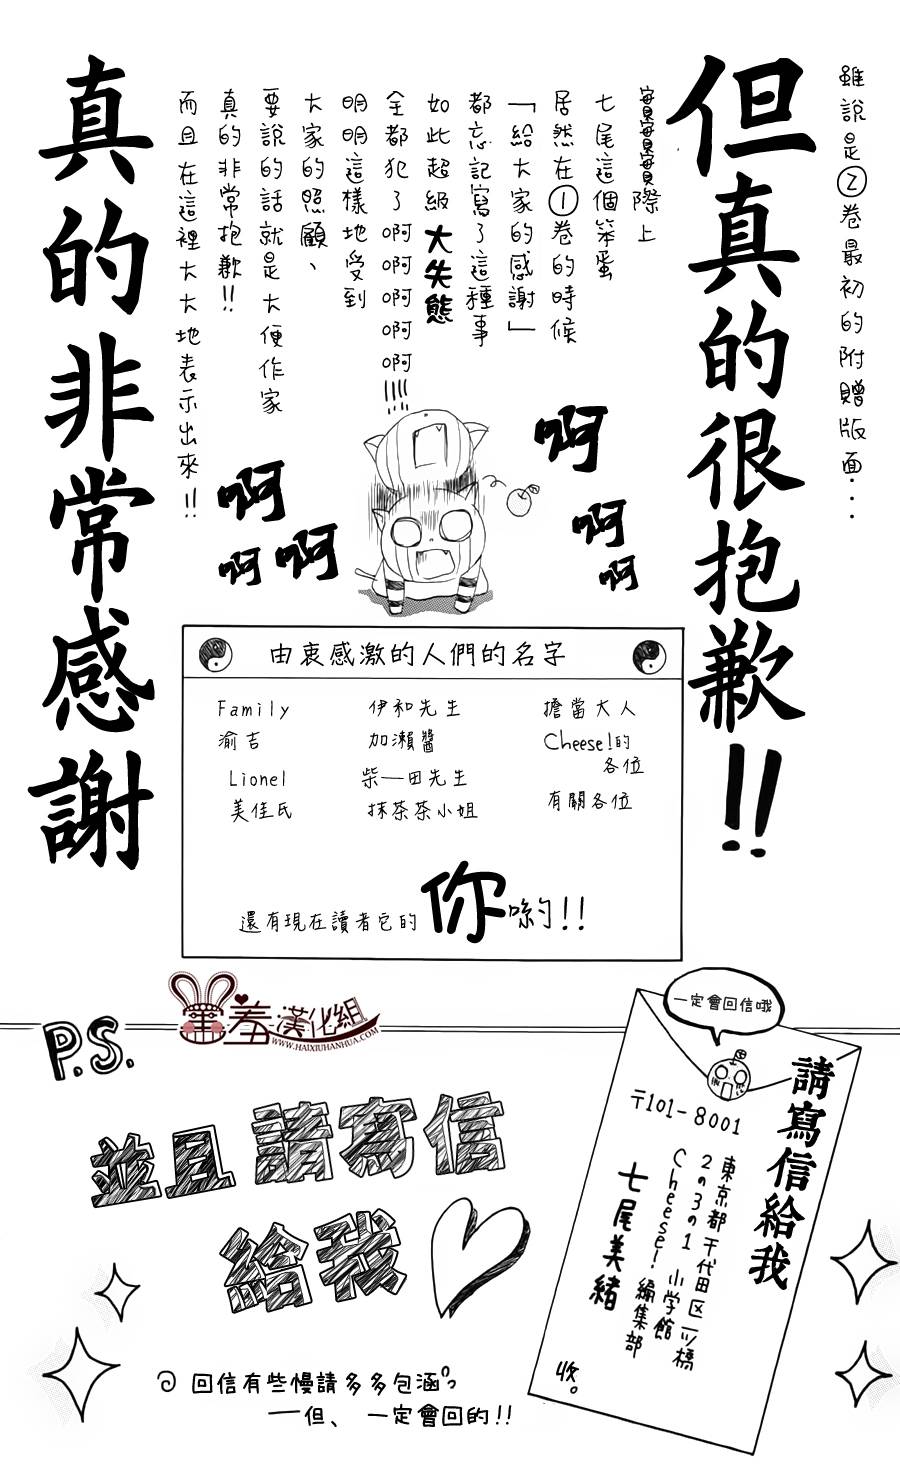 雖說是②卷最初的附贈版面...
但真的很抱歉!!
實實實際上
七尾這個笨蛋
居然在①卷的時候
「給大家的感謝」
都忘記寫了這種事
如此超級大失態
全都犯了啊啊啊啊!!!!
明明這樣地受到
大家的照顧、
要說的話就是大便作家
真的非常抱歉!!
而且在這裡大大地表示出來!!
真的非常感謝
啊
啊
啊
啊
啊
啊
由衷感激的人們的名字
Family
渝吉
Lionel
美佳氏
伊和先生
加瀨醬
柴一田先生
抹茶茶小姐
擔當大人
Cheese!的
各位
有關各位
還有現在讀者它的你喲!!
羞漢化組
WWW.HAIXIUHANHUA.COM
P.S.
並且請寫信
給我
回信有些慢請多多包涵
一但、一定會回的!!
一定會回信哦
請寫信給我
〒101-8001
東京都千代田区一ツ橋
2の3の1 小学館
Cheese! 編集部
七尾美緒
收。